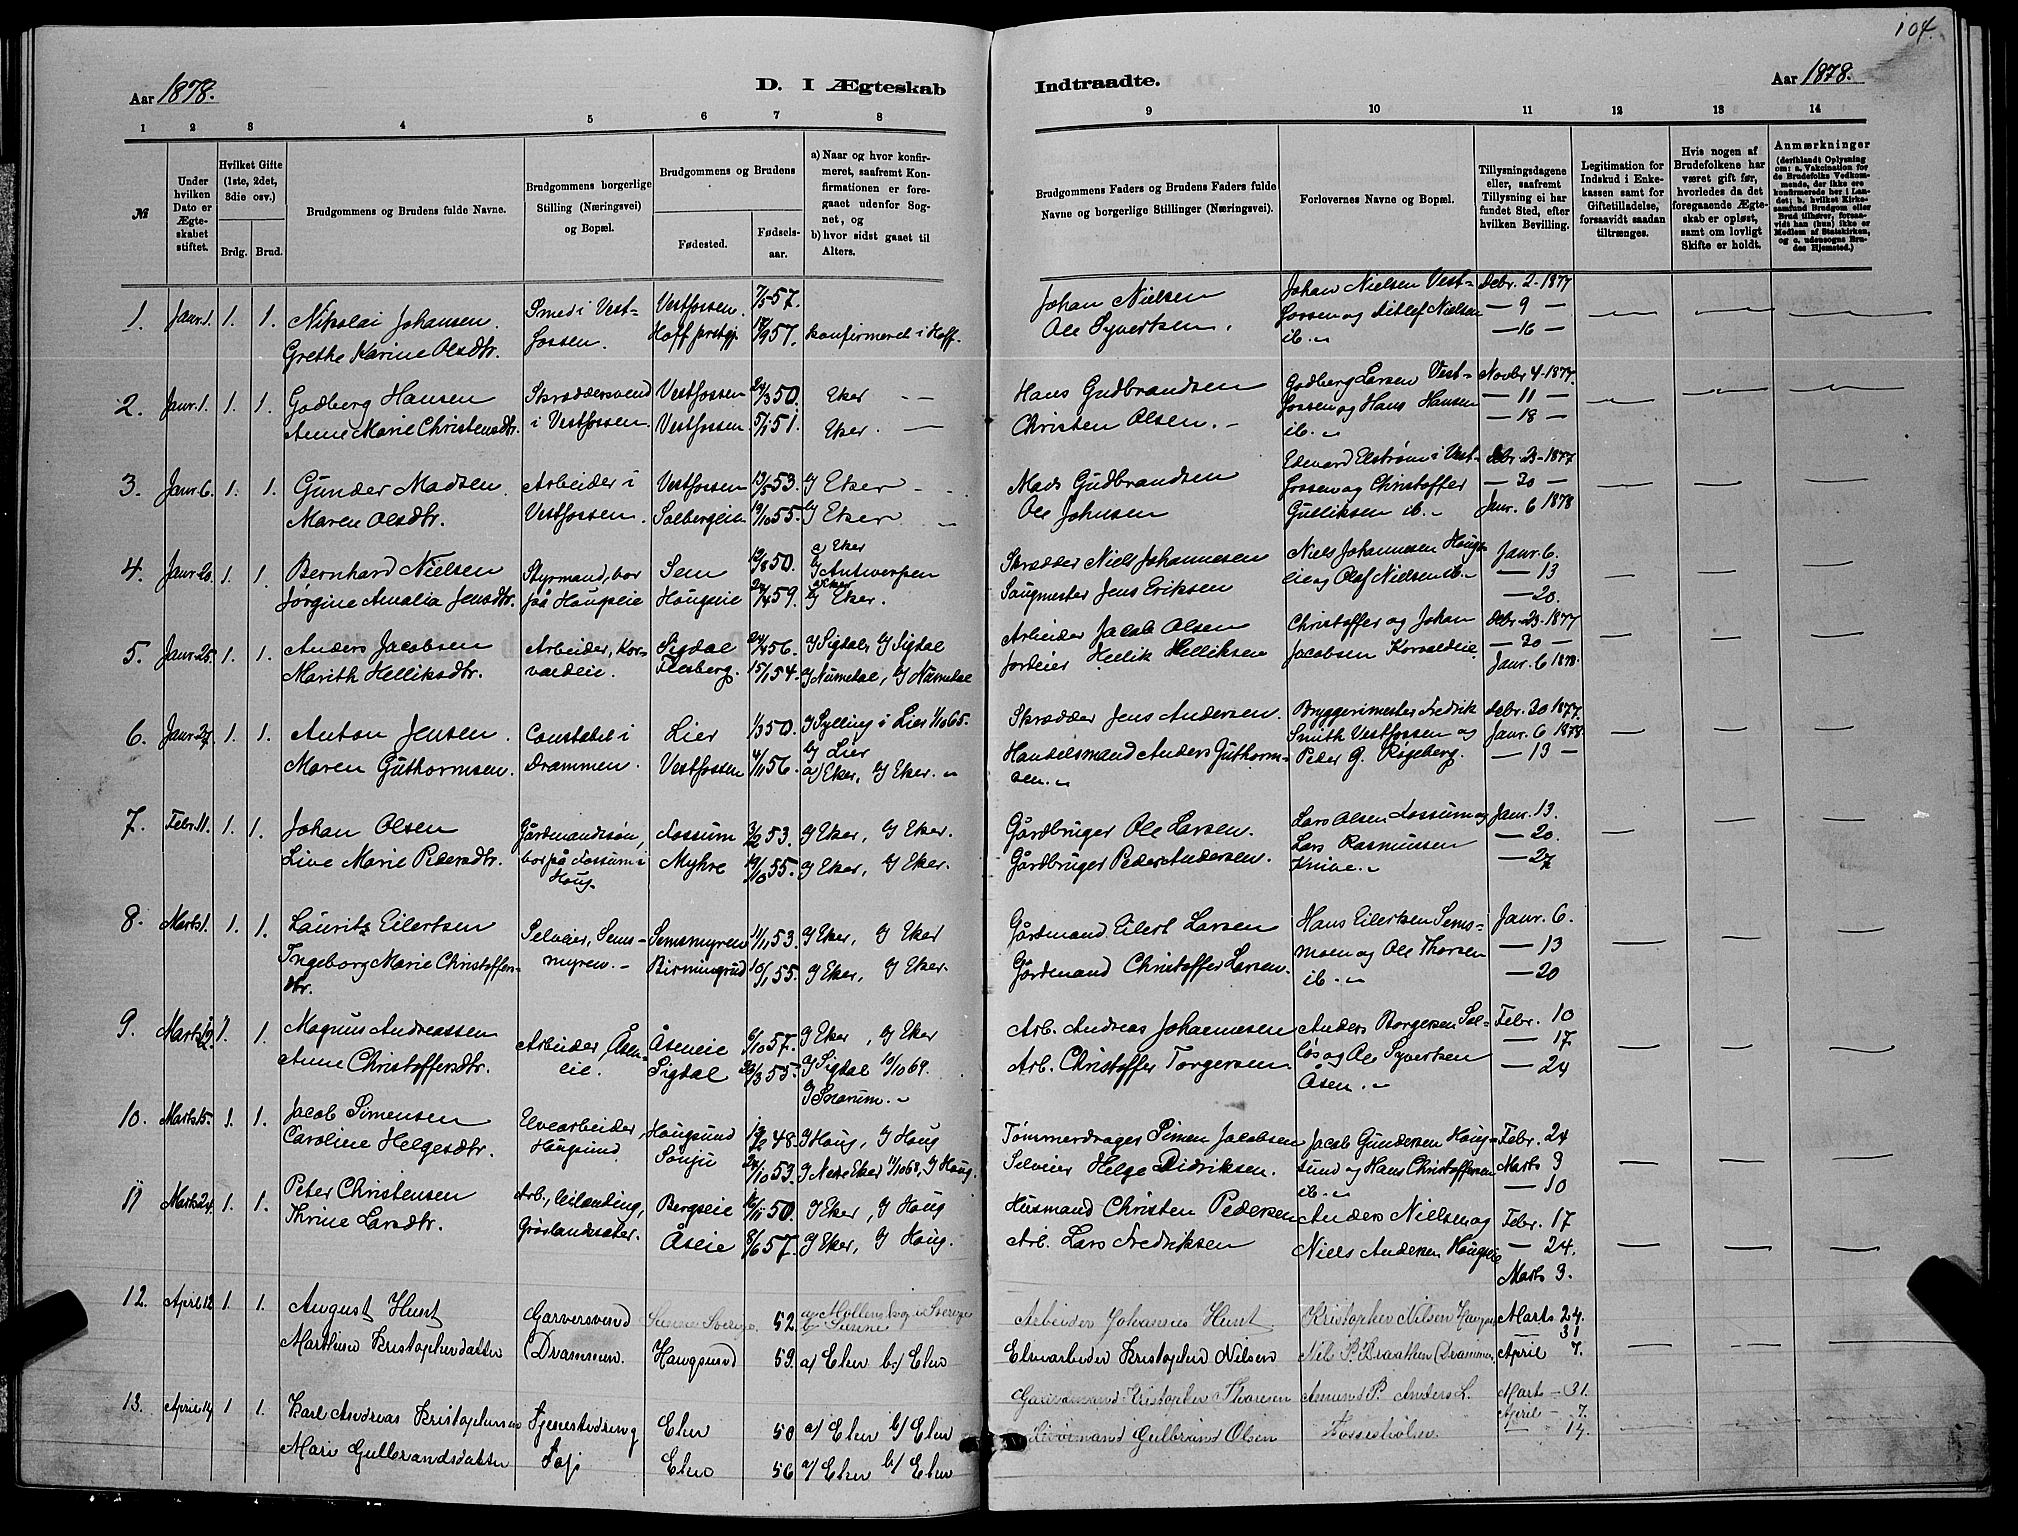 104.
Aar 1878.
D. I Ægteskab
Indtraadte.
Aar 1878.
1 2 3 4 5 6 7 8
9 10 11 12 13 14
№
Under hvilken Dato er Ægteskabet stiftet.
Hvilket Gifte (1ste, 2det, 3die osv.)
Brdg.
Brud.
Brudgommens og Brudens fulde Navne.
Brudgommens borgerlige Stilling (Næringsvei) og Bopæl.
Brudgommens og Brudens
Fødested.
Fødselsaar.
a) Naar og hvor konfirmeret, saafremt Konfirmationen er foregaaet udenfor Sognet, og
b) hvor sidst gaaet til Alters.
Brudgommens Faders og Brudens Faders fulde Navne og borgerlige Stillinger (Næringsvei).
Forlovernes Navne og Bopæl.
Tillysningsdagene eller, saafremt Tillysning ei har fundet Sted, efter hvilken Bevilling.
Legitimation for Indskud i Enkekassen samt for Giftetilladelse, forsaavidt saadan tiltrænges.
Hvis nogen af Brudefolkene har været gift før, hvorledes da det foregaaende Ægteskab er opløst, samt om lovligt Skifte er holdt.
Anmærkninger (deriblandt Oplysning om: a. Vakcination for de Brudefolks Vedkommende, der ikke ere konfirmerede her i Landet; b. hvilket Kirkesamfund Brudgom eller Brud tilhører, forsaavidt han (hun) ikke er Medlem af Statskirken, og c. udensogns Brudes Hjemsted.)
1. Janr. 1. 1. 1. Nikolai Johansen. Smed i Vest- Vestfossen. 7/5 57. Johan Nielsen Johan Nielsen Vest- Debr. 2. 1877
Grethe Karine Olsdtr. fossen. Hoff prstgj. 57. konfirmeret i Hoff. Ole Syvertsen. fossen og Ditlef Nielsen — 9 —
ib. — 16 —
2. Janr. 1. 1. 1. Godberg Hansen Skræddersvend Vestfossen 24/3 50. Eker — Hans Gudbrandsen Godberg Larsen Vest- Novbr 4. 1877.
Anne Marie Christensdtr. i Vestfossen. Vestfossen 5/1 51. Eker. — Christen Olsen. fossen og Hans Hansen — 11 —
ib. — 18 —
3. Janr. 6. 1. 1. Gunder Madsen. Arbeider i Vestfossen 13/5 53. I Eker Mads Gudbrandsen Edward Elstrøm i Vest- Debr. 23. 1877
Maren Olsdtr. Vestfossen. Solbergeie 19/10 55. I Eker Ole Johnsen fossen og Christoffer — 30 —
Gulliksen ib. Janr. 6 1878
4. Janr. 20. 1. 1. Bernhard Nielsen Styrmand, bor Sem 12/8 50. a) Eker I Antwerpen Skrædder Niels Johannesen Niels Johannesen Hougs- Janr. 6.
Jørgine Amalia Jensdtr. på Hougseie Hougseie 24/4 59. a) Eker b) Eker. Saugmester Jens Eriksen eie og Olaf Nielsen ib. — 13
— 20.
5. Janr. 25. 1. 1. Anders Jacobsen Arbeider, Kor- Sigdal 24/4 56. I Sigdal, I Sigdal Arbeider Jacob Olsen Christoffer og Johan Debr. 23. 1877
Marith Helliksdtr. valdeie. Flesberg. 15/1 54. I Numedal, I Numedal Jordeier Hellik Helliksen Jacobsen Korvaldeie — 30 —
Janr. 6 1878.
6. Janr. 27. 1. 1. Anton Jensen. Constabel i Lier 1/3 50. I Sylling i Lier 1/10 65. Skrædder Jens Andersen. Bryggerimester Fredrik Debr. 30 1877.
Maren Guthormsen. Drammen. Vestfossen 4/11 56. b) Lier Handelsmand Anders Guthorm- Smith Vestfossen og Janr. 6 1878.
a) Eker, I Eker. sen. Peder G. Røgeberg. — 13 —
7. Febr. 11. 1. 1. Johan Olsen Gårdmandssøn, Fossum 3/2 53. I Eker, I Eker. Gårdbruger Ole Larsen. Lars Olsen Fossum og Janr. 13.
Live Marie Pedersdtr. bor på Fossum i Myhre 19/10 55. I Eker, I Eker. Gårdbruger Peder Andersen. Lars Rasmussen — 20.
Houg. Knive. — 27
8. Marts 1. 1. 1. Lauritz Eilertsen Selveier, Sems- Semsmyren 11/11 53. I Eker, I Eker Gårdmand Eilert Larsen Hans Eilertsen Sems- Janr. 6.
Ingeborg Marie Christoffers- myren. Birmingrud 10/1 55. I Eker, I Eker. Gårdmand Christoffer Larsen. moen og Ole Thorsen — 13
dtr. ib. — 20
9. Marts 1. 1. Magnus Andreassen Arbeider, Åsen- Åseneie 6/10 57. I Eker, I Eker Arb. Andreas Johannesen Anders Borgersen Sol- Febr. 10
Anne Christoffersdtr. eie. Sigdal 23/3 55. I Sigdal 10/10 69. Arb. Christoffer Torgersen løs og Ole Syvertsen — 17
I Snarum. Åsen. — 24
10. Marts 15. 1. 1. Jacob Simensen Elvearbeider, Hougsund 19/2 48. I Houg, I Houg Tømmerdrager Simen Jacobsen Jacob Gundersen Houg- Febr. 24
Caroline Helgesdtr. Hougsund Sonju 24/10 53. I Nedre Eker 11/10 68, I Houg. Selveier Helge Didriksen. sund og Hans Christoffersen Marts 3
ib. — 10
11 Marts 24. 1. 1. Peter Christensen Arb., Bergseie 16/11 50. I Eker, I Houg Husmand Christen Pedersen Anders Nielsen og Febr. 17
Thrine Larsdtr. Åseie 8/6 57. I Eker, I Houg. Arb. Lars Fredriksen Niels Andersen Hougseie — 24.
Marts 3.
12. April 12 1. 1. August Hunt Garversvend Sverige. 52. a) i Sverige Arbeider Johannes Hunt Kristopher Nilsen Marts 24.
31
Marthine Kristophersdatter (Drammen. Haugsund 59. a) Eker b) Eker Elvearbeider Kristopher Nilsen Nils P. Braathen (Drammen April 7.
13. April 14 1 1. Karl Andreas Kristophersen Tjenestedreng Eker 50 a/ Eker b/ Eker Gaardmand Kristopher Thoresen Amund P. Anders L. Marts — 31.
April — 7.
Mari Gulbrandsdatter Eker 56 a/ Eker b/ Eker Gulbrand Olsen Fossesholm — 14.